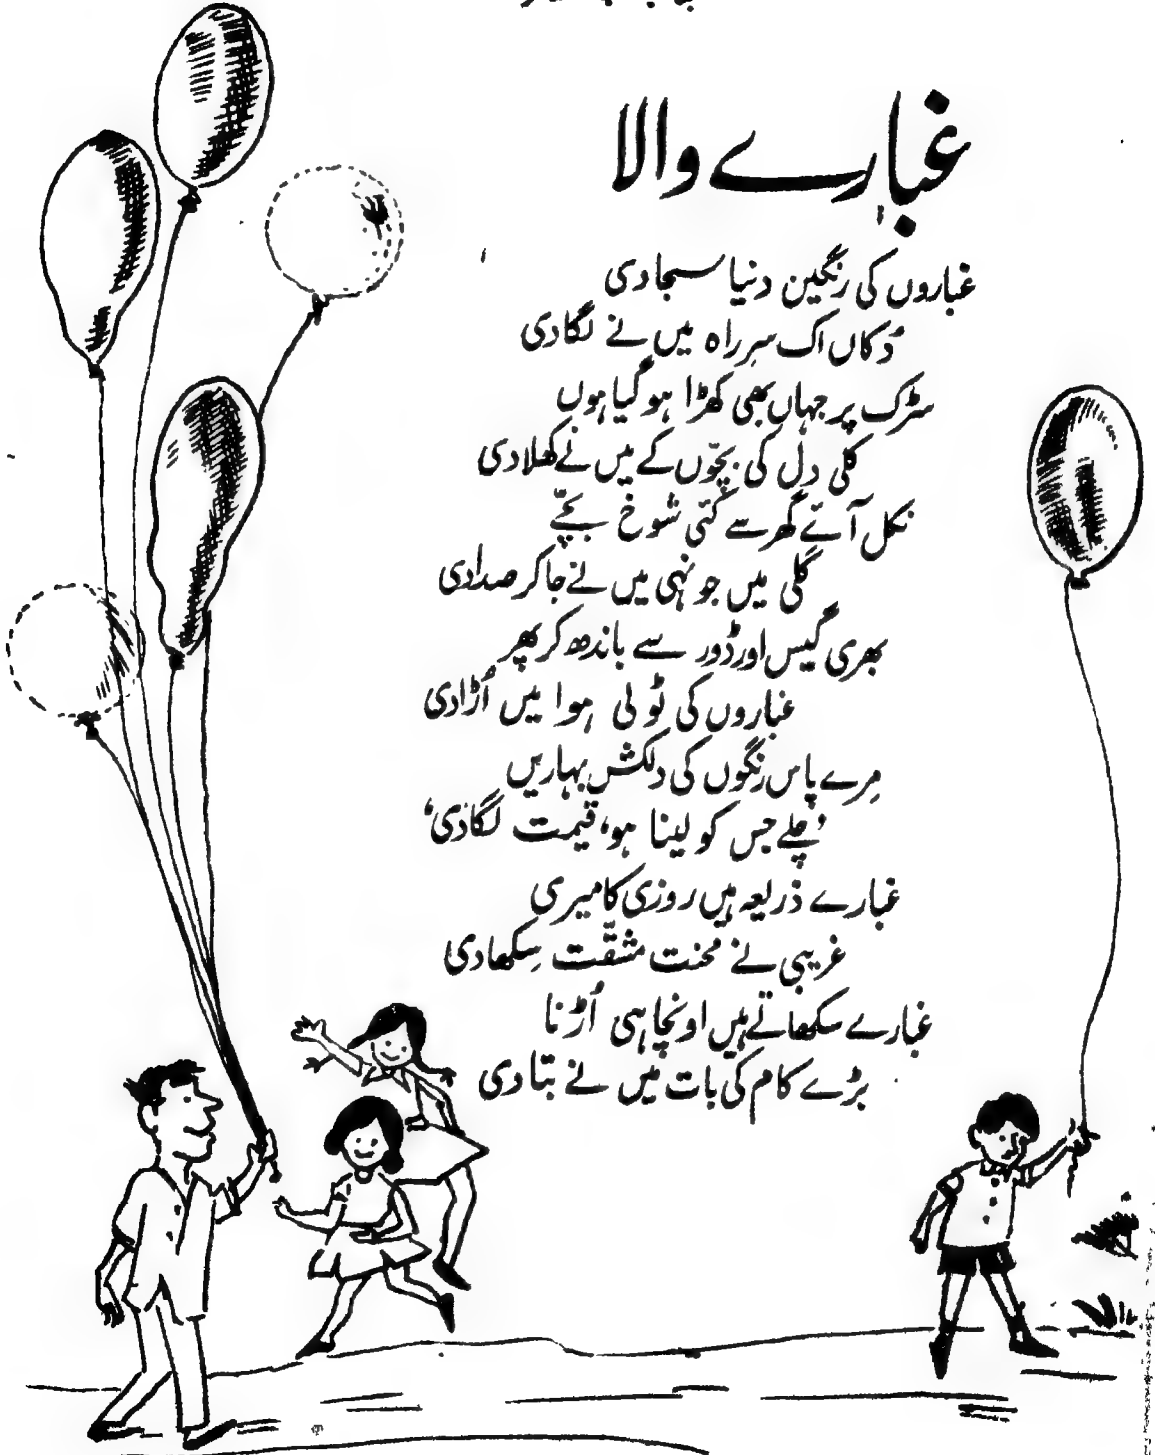 غبارے والا
غباروں کی رنگین دنیا سجا دی
دُکاں اک سرِ راہ میں نے لگا دی
سڑک پر جہاں بھی کھڑا ہو گیا ہوں
کلی دل کی بچّوں کے میں نے کھلا دی
نکل آئے گھر سے کئی شوخ بچّے
گلی میں جونہی میں نے جا کر صدا دی
بھری گیس اور ڈور سے باندھ کر پھر
غباروں کی ٹولی ہوا میں اُڑا دی
مِرے پاس رنگوں کی دلکش بہاریں
’چلے جس کو لینا ہو، قیمت لگا دی‘
غبارے ذریعہ ہیں روزی کا میری
غریبی نے محنت مشقّت سِکھا دی
غبارے سکھاتے ہیں اونچا ہی اُڑنا
بڑے کام کی بات میں نے بتا دی